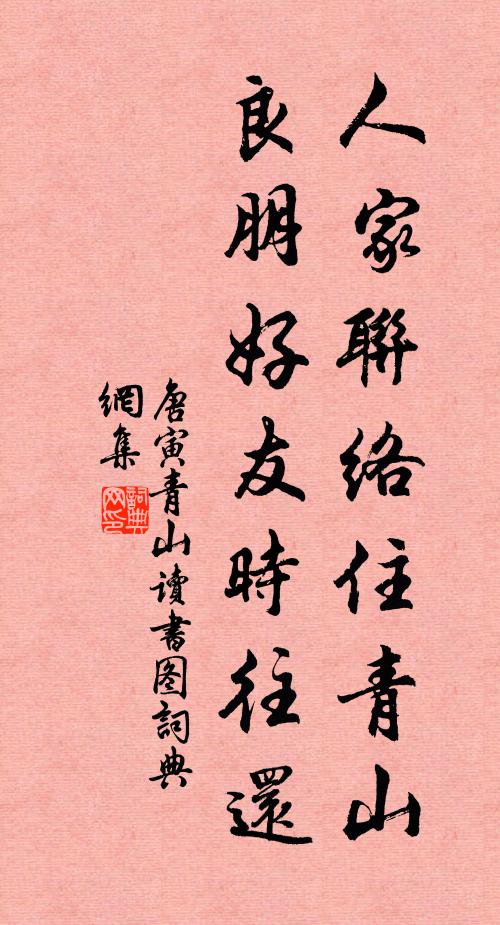 人家聯絡住青山
良朋好友時往還
唐寅青山讀書图詞典
網集
詞典网印